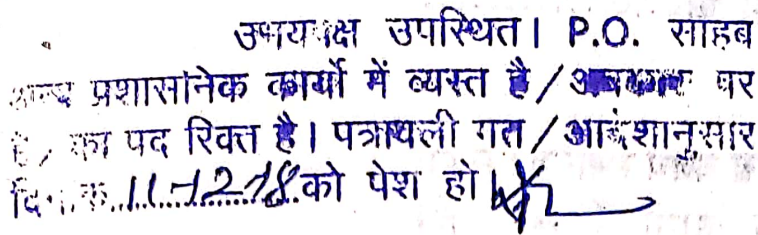 उभयपक्ष उपस्थित। P.O. साहब
अन्य प्रशासनिक कार्यो में व्यस्त है/अवकाश पर
है/का पद रिक्त है। पत्रावली गत/आदेशानुसार
दिनांक 11-12-18 को पेश हो